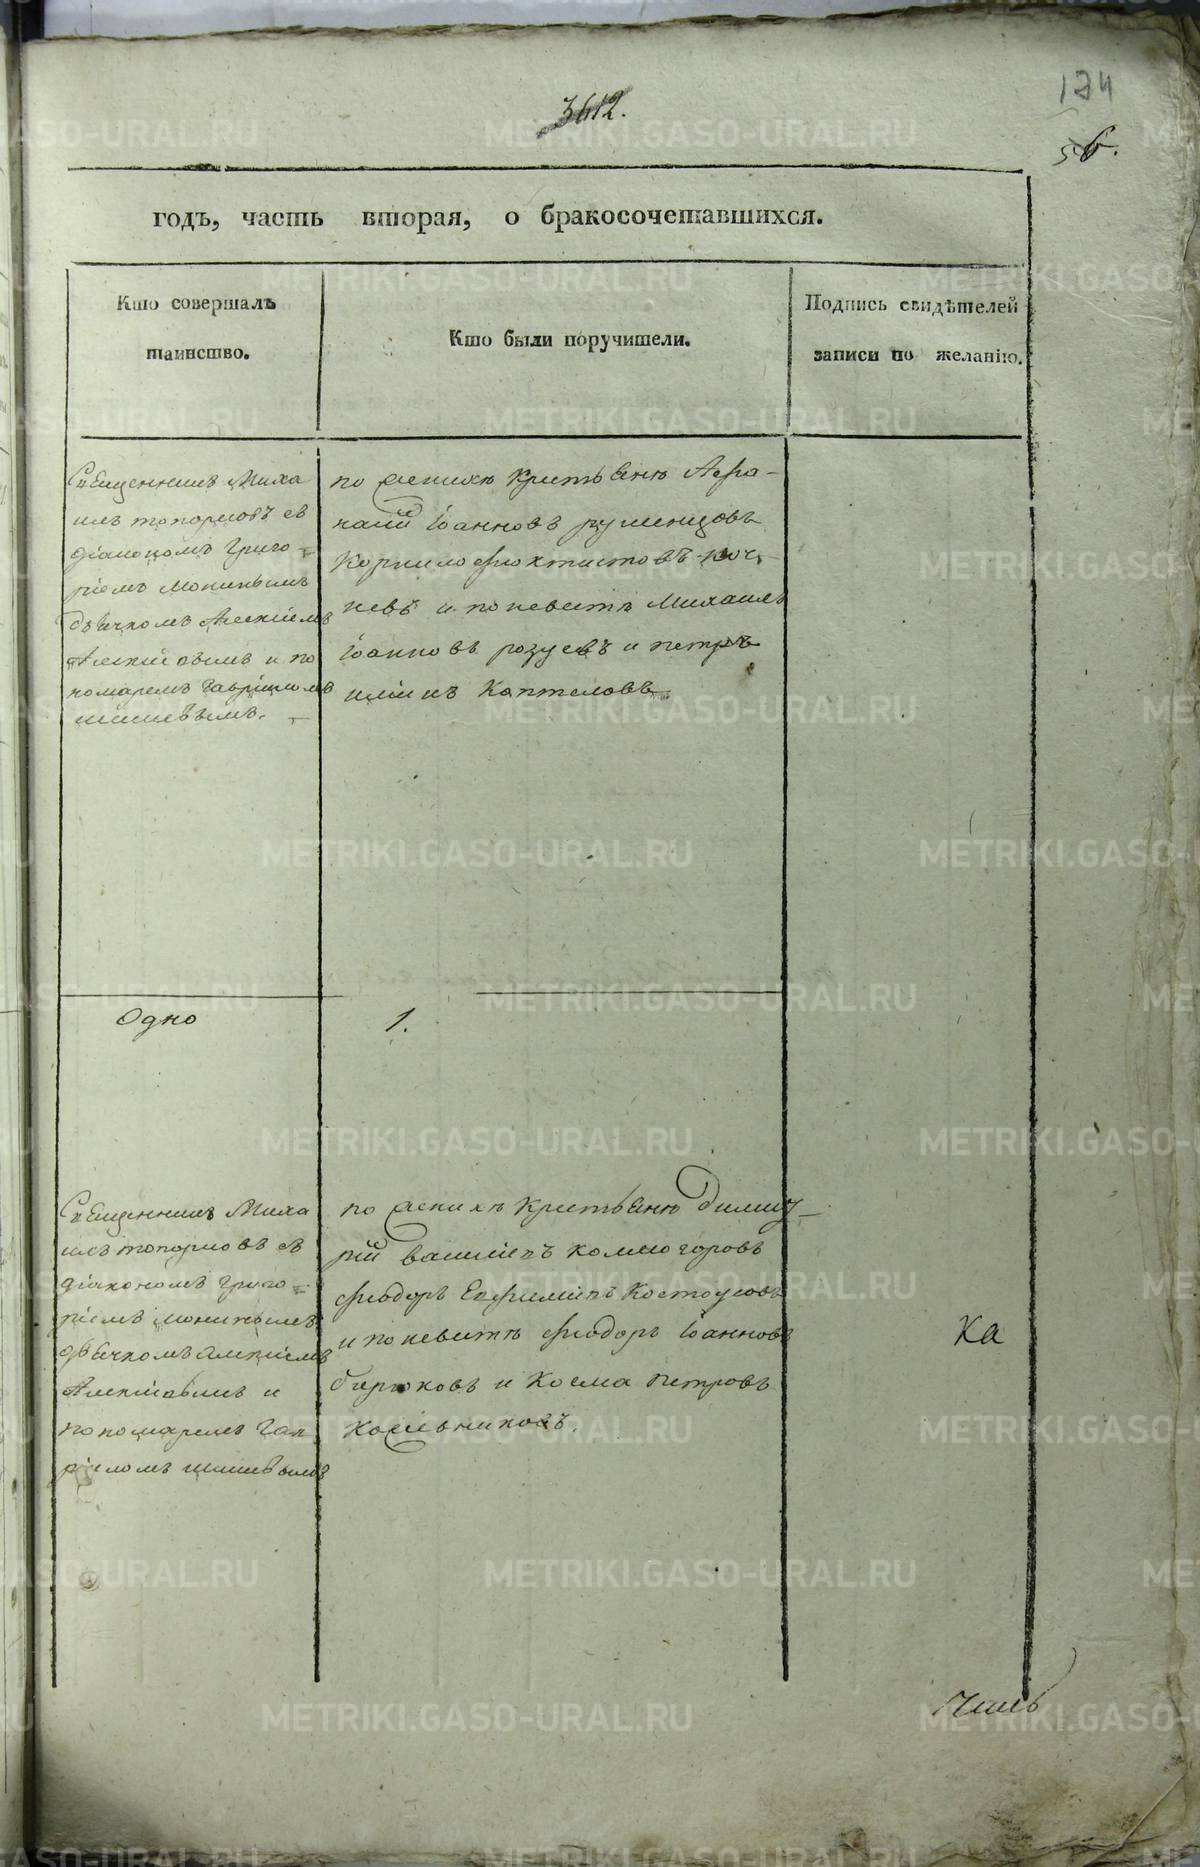 3612.
124
56.
годъ, часть вторая, о бракосочетавшихся.
Кто совершалъ
таинство.
Кто были поручители.
Подпись свидѣтелей
записи по желанію.
Священникъ Миха
илъ топорковъ съ
діакономъ Григо=
ріемъ
дьячкомъ Алексіемъ
Алексіевымъ и по
номаремъ Гавріиломъ
шишевымъ.
по женихѣ крестьяне Афа-
насій Іоанновъ румянцовъ
Корнило феоктистовъ
и по невестѣ Михаилъ
Іоанновъ розуевъ и петръ
иліинъ Коптеловъ
Одно
1.
Священникъ Миха
илъ топорковъ съ
діакономъ Григо=
ріемъ
дьячкомъ Алексіемъ
Алексіевымъ и
пономаремъ Гав
ріиломъ шишевымъ
по женихѣ крестьяне Димит
рій василіевъ колмогоровъ
феодоръ Евфиміевъ Костоусовъ
и по невестѣ феодоръ Іоанновъ
бирюковъ и Косма петровъ
Ка
METRIKI.GASO-URAL.RU